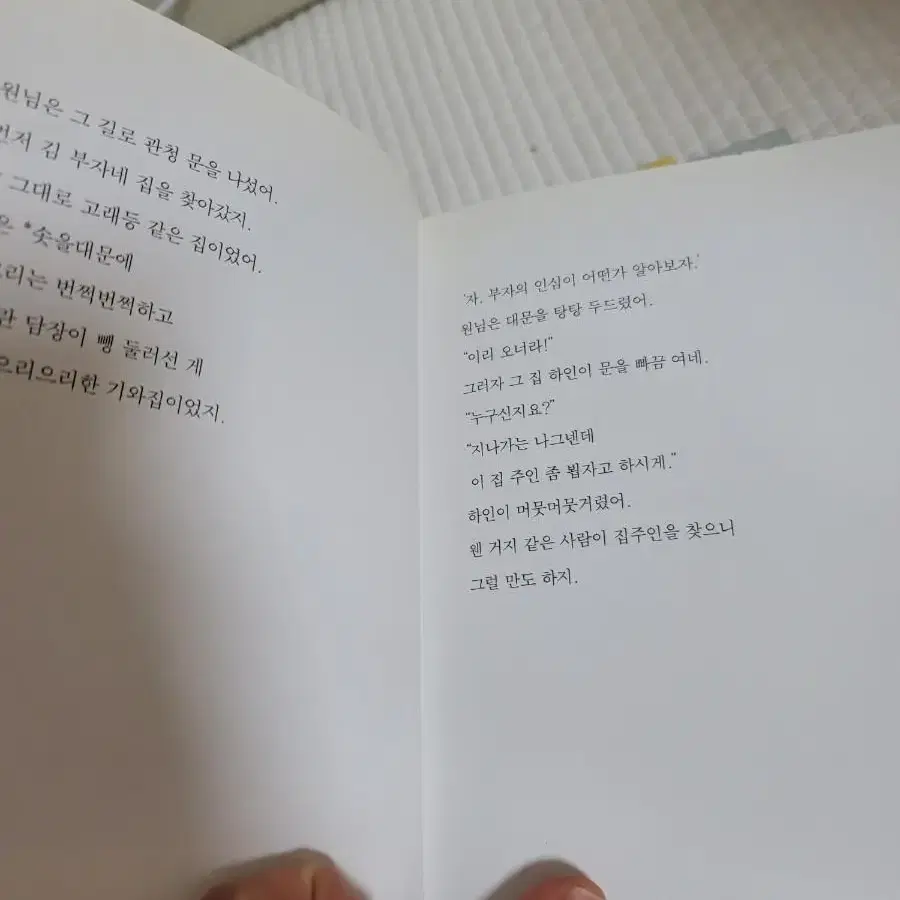 원님은 그 길로 관청 문을 나섰어.
먼저 김 부자네 집을 찾아갔지.
그대로 고래등 같은 집이었어.
*솟을대문에
번쩍번쩍하고
담장이 뺑 둘러선 게
으리으리한 기와집이었지.
'자, 부자의 인심이 어떤가 알아보자.'
원님은 대문을 탕탕 두드렸어.
"이리 오너라!"
그러자 그 집 하인이 문을 빠끔 여네.
"누구신지요?"
"지나가는 나그넨데
이 집 주인 좀 뵙자고 하시게."
하인이 머뭇머뭇거렸어.
웬 거지 같은 사람이 집주인을 찾으니
그럴 만도 하지.